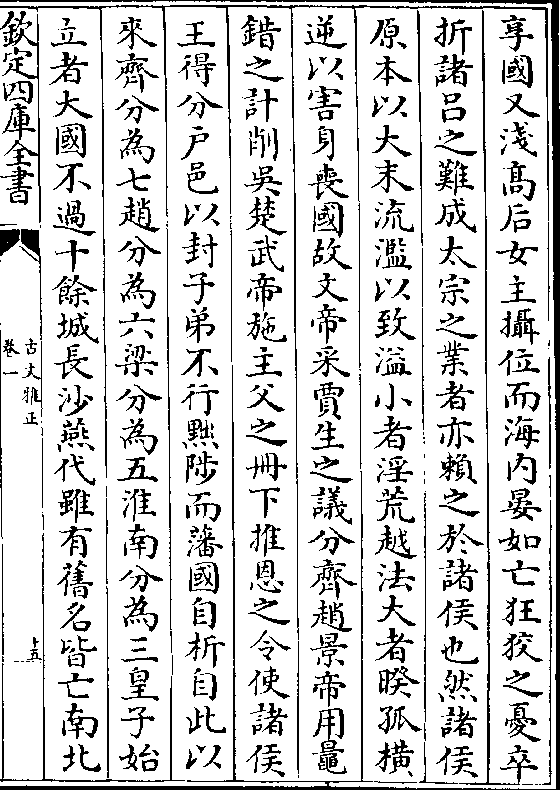 享國又淺髙后女主攝位而海内晏如亡狂狡之憂卒
折諸吕之難成太宗之業者亦賴之於諸侯也然諸侯
原本以大末流濫以致溢小者淫荒越法大者暌孤横
逆以害身喪國故文帝采賈生之議分齊趙景帝用鼂
錯之計削吳楚武帝施主父之冊下推恩之令使諸侯
王得分户邑以封子弟不行黜陟而藩國自析自此以
來齊分為七趙分為六梁分為五淮南分為三皇子始
立者大國不過十餘城長沙燕代雖有舊名皆亡南北
欽定四庫全書
古文雅正
卷一
十五